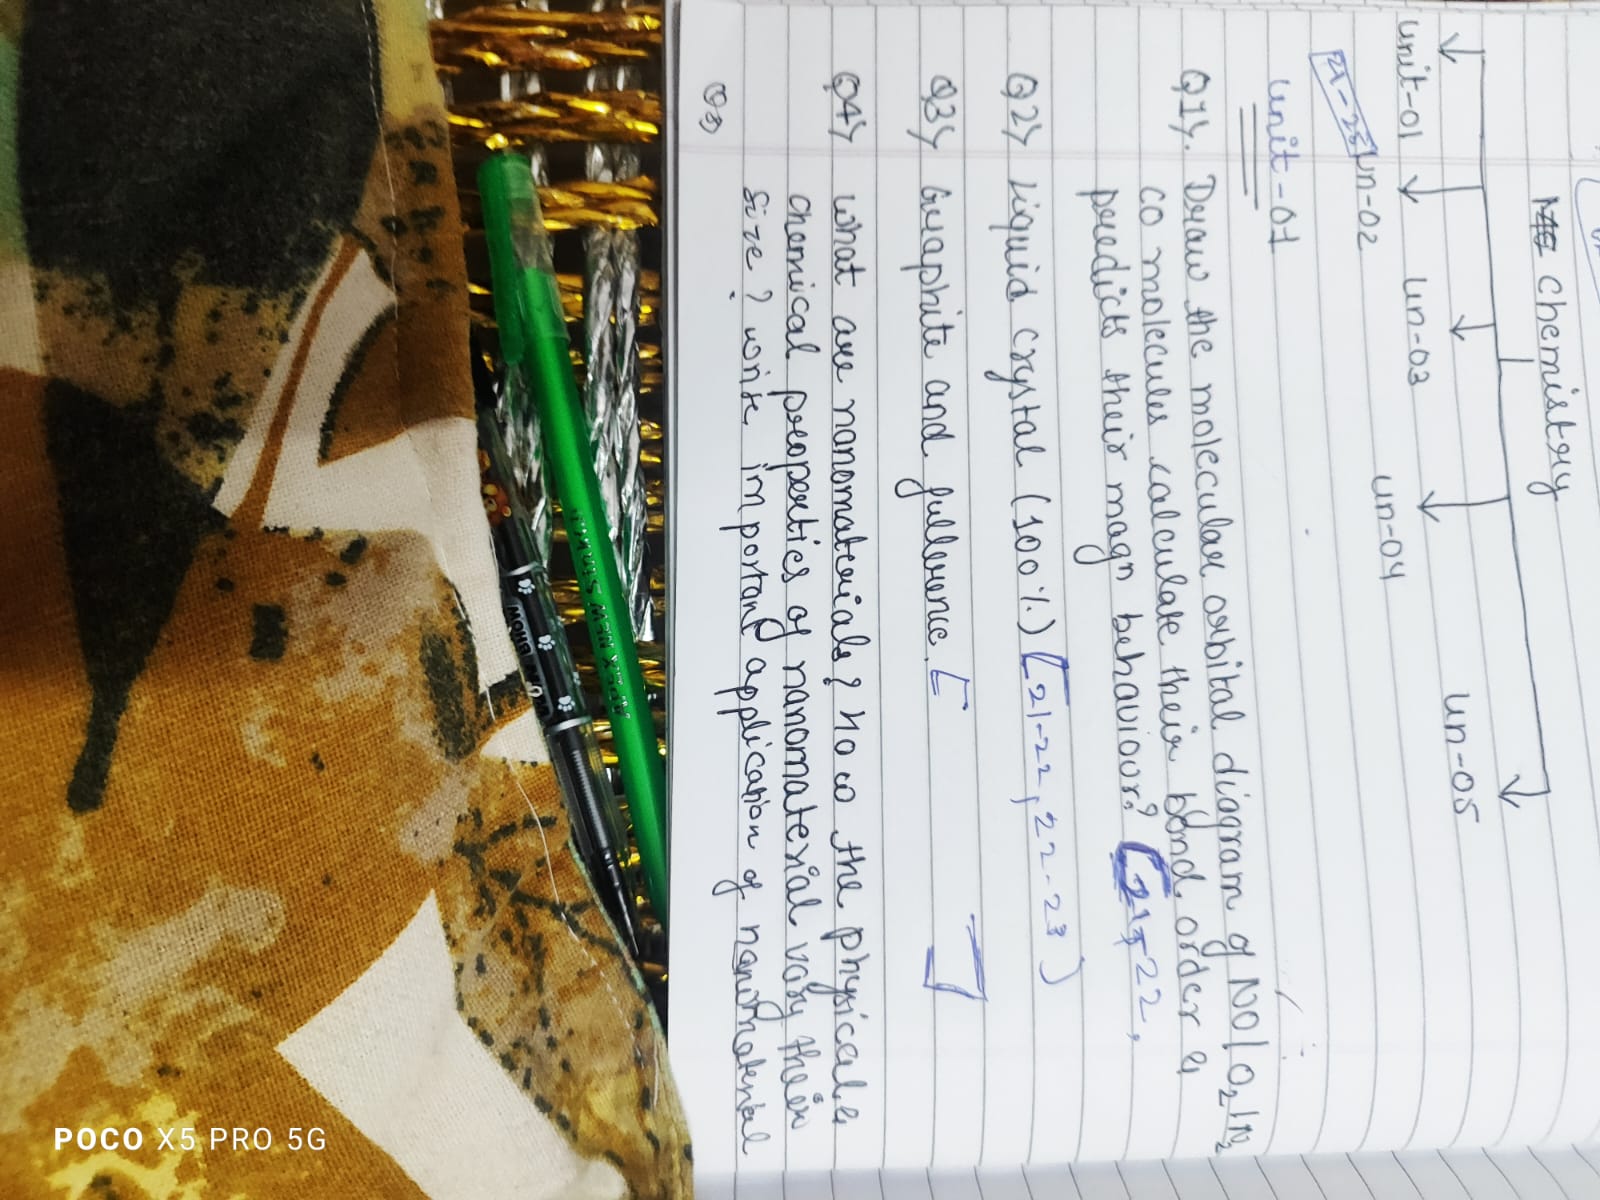 Chemistry
unit-01
un-02
un-03
un-04
un-05
21-23
Unit-01
Q1>. Draw the moleculear orbital diagram of NO/O2/N2
co molecules calculate their bond order &
predicts their magn behaviour? [21-22,
Q2> Liquid crystal (100%) [21-22, 22-23)
Q3> Graphite and fullerene. [ ]
Q4> what are nanomaterials? How the physical &
chemical properties of nanomaterial vary their
size? write important application of nanomaterial
APPLEX NEW SIMHA
POCO X5 PRO 5G